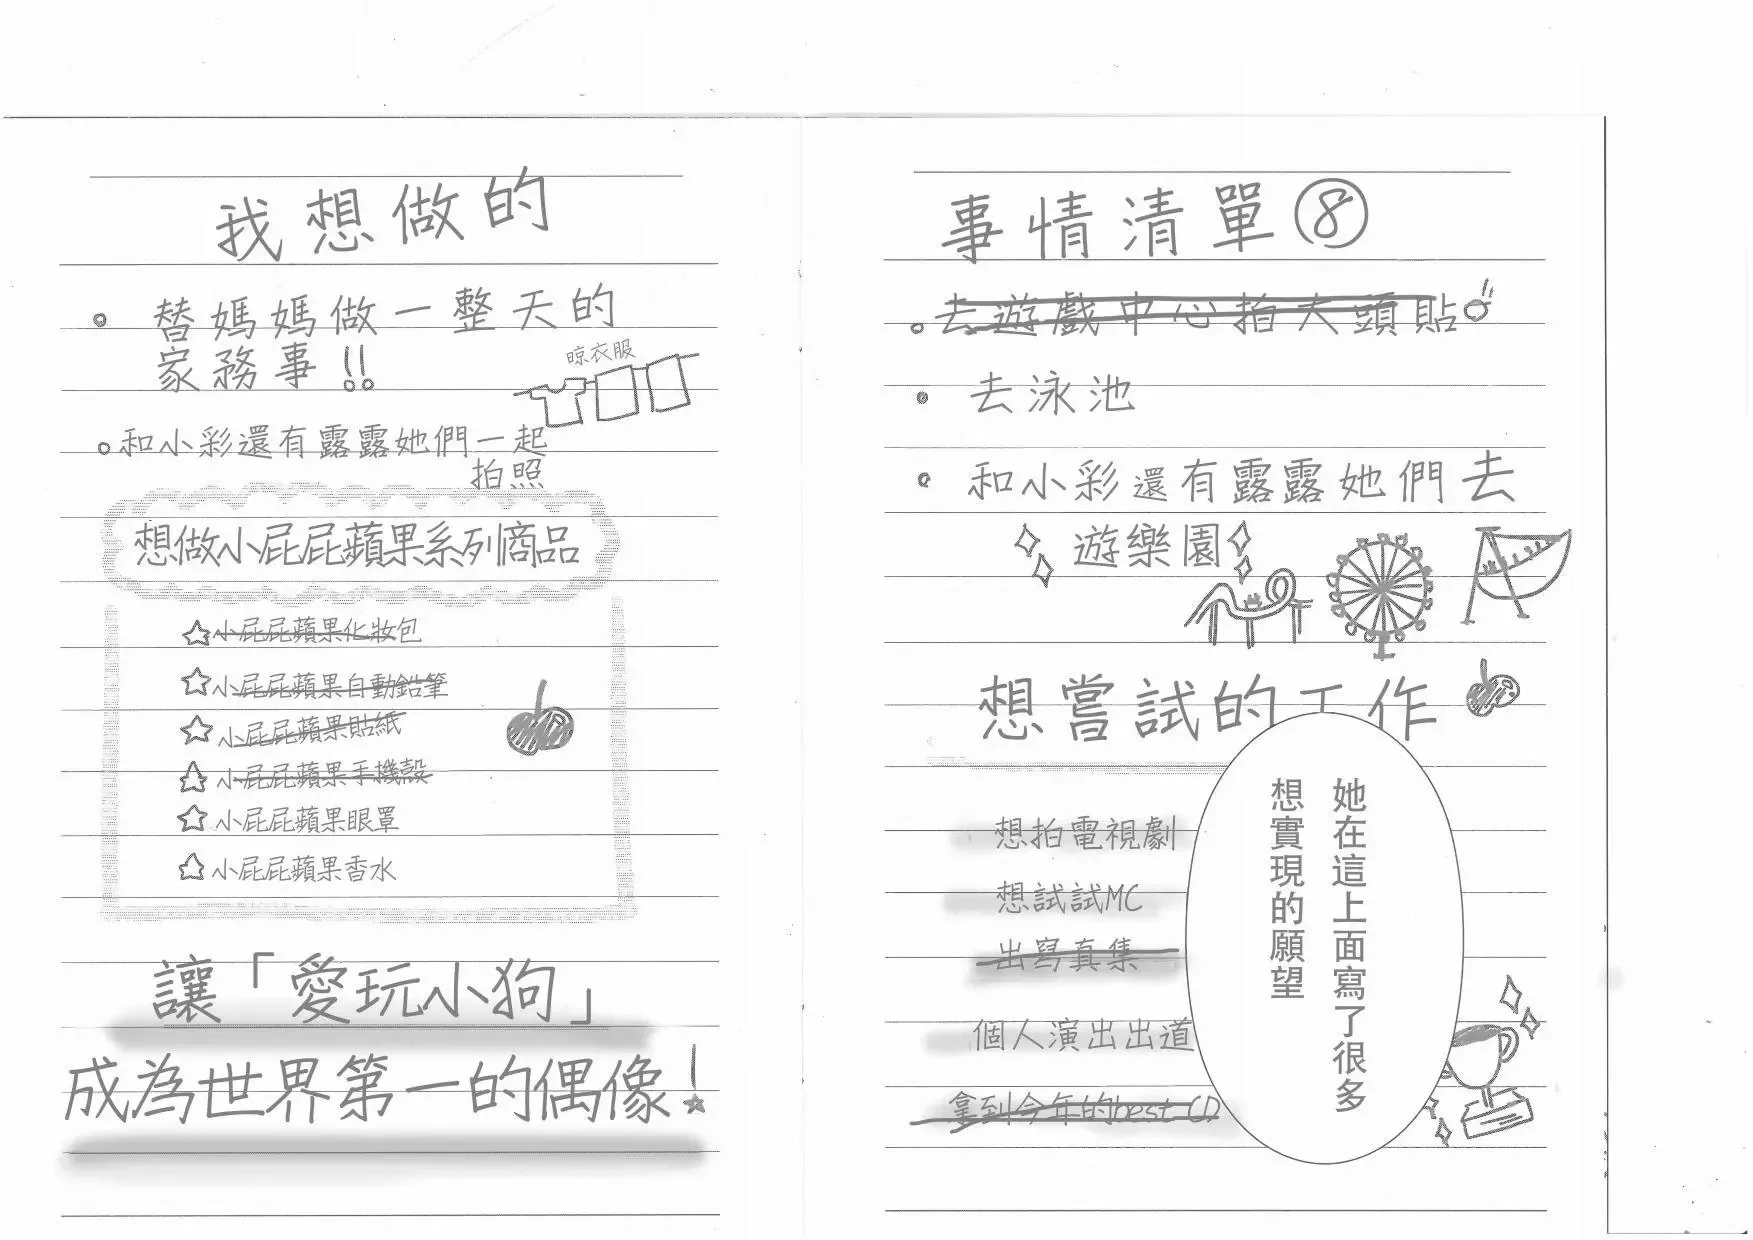 我想做的
替媽媽做一整天的
家務事!!
晾衣服
和小彩還有露露她們一起
拍照
想做小屁屁蘋果系列商品
☆小屁屁蘋果化妝包
☆小屁屁蘋果自動鉛筆
☆小屁屁蘋果貼紙
☆小屁屁蘋果手機殼
☆小屁屁蘋果眼罩
☆小屁屁蘋果香水
讓「愛玩小狗」
成為世界第一的偶像!
事情清單⑧
去遊戲中心拍大頭貼
去泳池
和小彩還有露露她們去
遊樂園
想嘗試的工作
想拍電視劇
想試試MC
出寫真集
個人演出出道
拿到今年的best CD
她在這上面寫了很多
想實現的願望